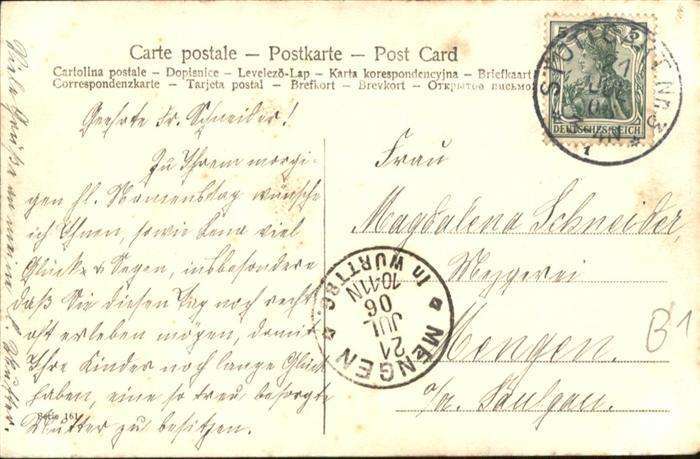 Carte postale – Postkarte – Post Card
Cartolina postale – Dopisnice – Levelező-Lap – Karta korespondencyjna – Briefkaart
Correspondenzkarte – Tarjeta postal – Brefkort – Brevkort – Открытое письмо
Geehrte Fr. Schneider!
Zu Ihrem morgi-
gen hl. Namenstag wünsche
ich Ihnen, sowie Lena viel
Glück & Segen, insbesondere
daß Sie diesen Tag noch recht
oft erleben mögen, damit
Ihre Kinder noch lange Glück
haben, eine so treu besorgte
Mutter zu besitzen.
Viele Grüße an meine l.
Serie 161
DEUTSCHES REICH
STUTTGART Nr.
Frau
Magdalena Schneider,
Mezgerei
Mengen.
o/a. Saulgau.
MENGEN in WÜRTTBG.
21 JUL 06
10-11N
B1